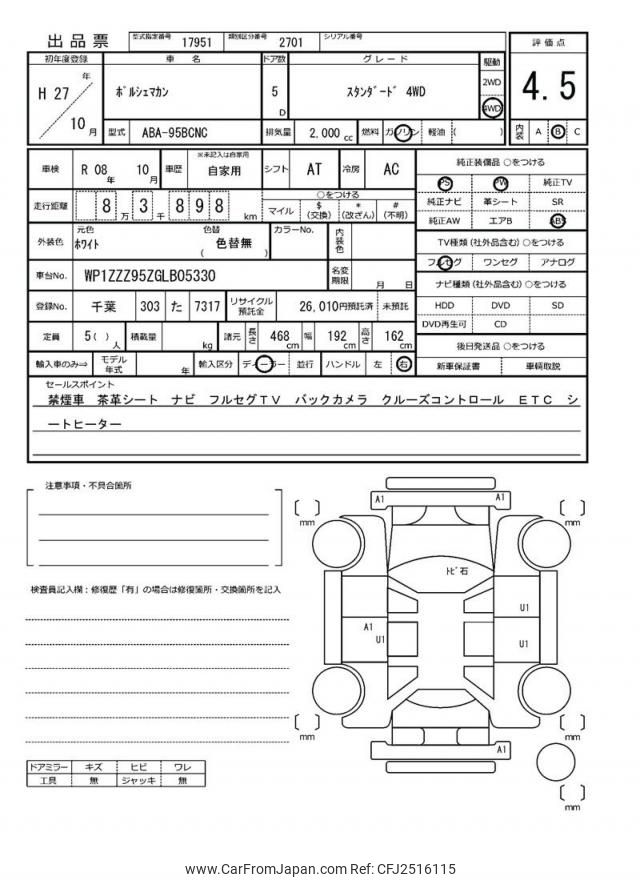 出品票 型式指定番号 17951 類別区分番号 2701 シリアル番号
初年度登録 車名 ドア数 グレード 駆動 評価点
H 27 年 10 月 ﾎﾟﾙｼｪﾏｶﾝ 5 D ｽﾀﾝﾀﾞｰﾄﾞ 4WD 2WD 4WD 4.5
型式 ABA-95BCNC 排気量 2,000 cc 燃料 ガソリン 軽油 ( ) 内装 A B C
車検 R 08 年 10 月 車歴 ※未記入は自家用 自家用 シフト AT 冷房 AC
純正装備品 ○をつける
PS PW 純正TV
走行距離 8 万 3 千 8 9 8 km ○をつける
マイル $ (交換) * (改ざん) # (不明)
純正ナビ 革シート SR
純正AW エアB ABS
外装色 元色 ﾎﾜｲﾄ 色替 ( 色替無 ) カラーNo. 内装色
TV種類 (社外品含む) ○をつける
フルセグ ワンセグ アナログ
車台No. WP1ZZZ95ZGLB05330 名変期限 月 日
ナビ種類 (社外品含む) ○をつける
登録No. 千葉 303 た 7317 リサイクル預託金 26,010円預託済 未預託
HDD DVD SD
DVD再生可 CD
定員 5 ( ) 人 積載量 kg 諸元 長さ 468 cm 幅 192 cm 高さ 162 cm
後日発送品 ○をつける
輸入車のみ⇒ モデル年式 年 輸入区分 ディーラー 並行 ハンドル 左 右
新車保証書 車輌取説
セールスポイント
禁煙車 茶革シート ナビ フルセグTV バックカメラ クルーズコントロール ETC シ
ートヒーター
注意事項・不具合箇所
検査員記入欄：修復歴「有」の場合は修復箇所・交換箇所を記入
A1 A1
mm mm
ﾄﾋﾞ石
U1
A1
U1 U1
mm mm
A1
mm
ドアミラー キズ ヒビ ワレ
工具 無 ジャッキ 無
www.CarFromJapan.com Ref: CFJ2516115